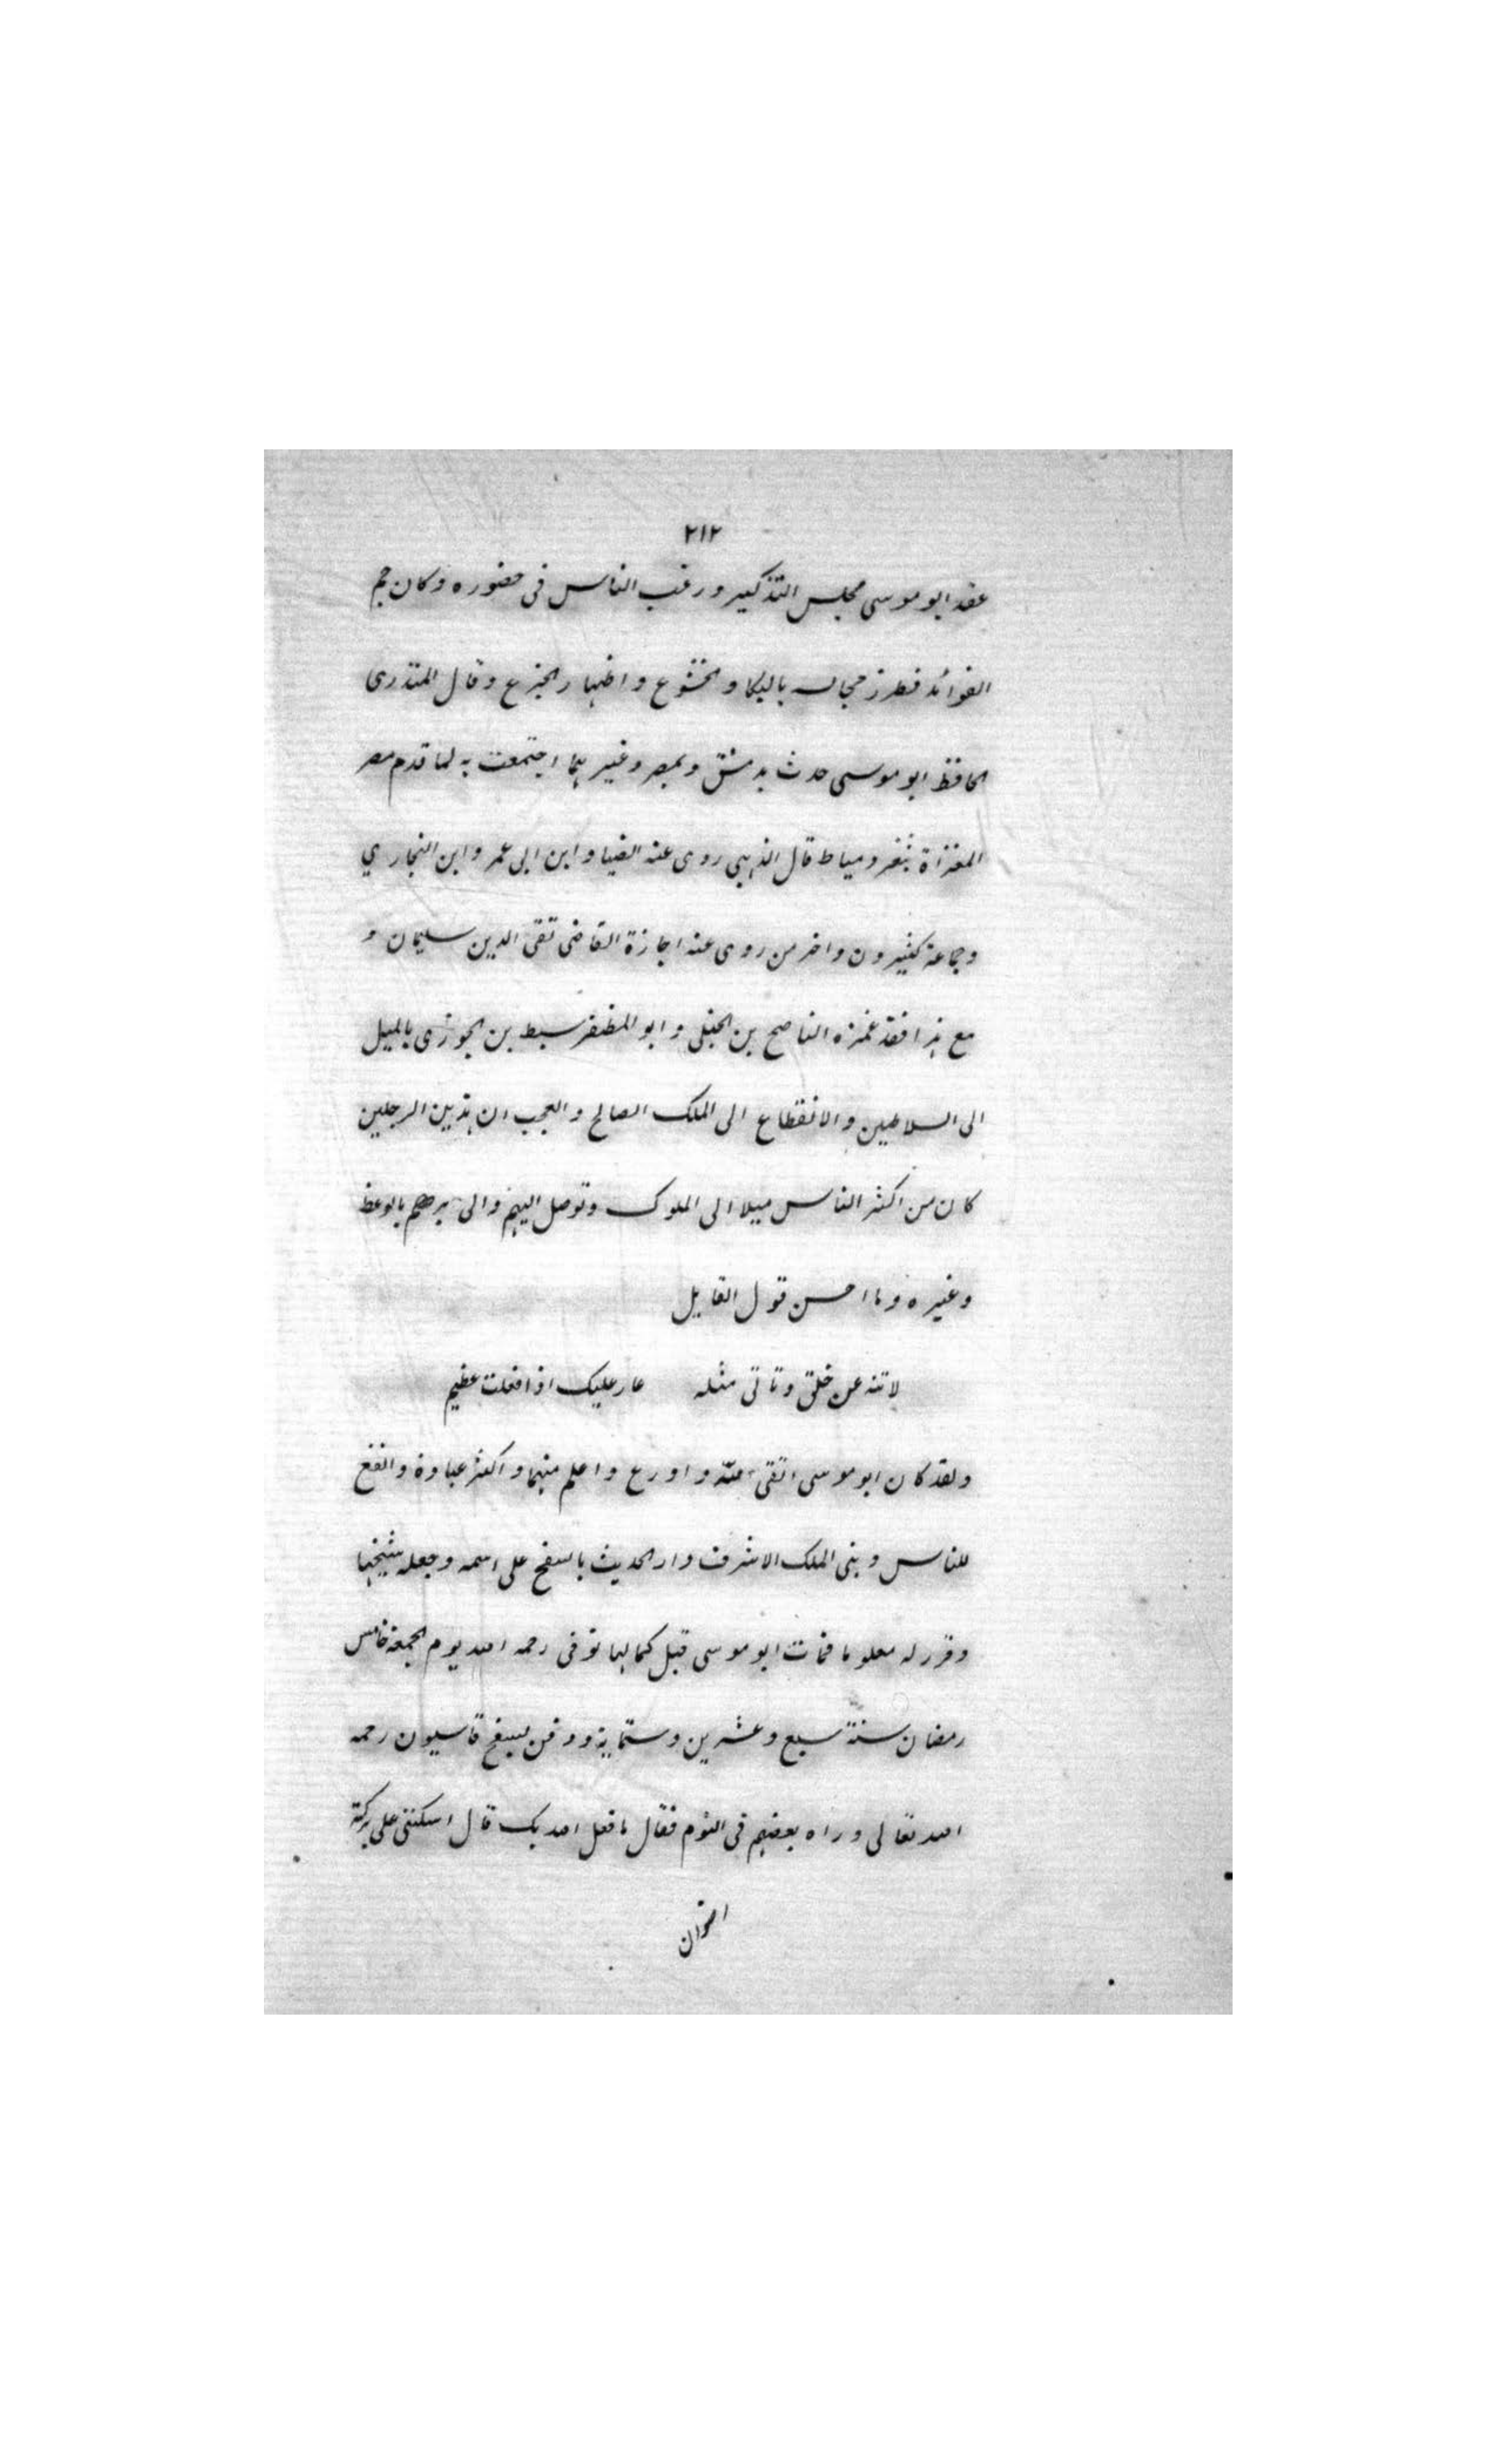 ٢١٢
عقد ابو موسى مجلس التذكير ورغب الناس فى حضوره وكان جم
الفوائد فطرز مجالسه بالبكا والخشوع واظهار الجزع وقال المنذرى
الحافظ ابو موسى حدث بدمشق وبمصر وغيرهما اجتمعت به لما قدم مصر
المغزاة بثغر دمياط قال الذهبى روى عنه الضيا وابن ابى عمر وابن النجارى
وجماعة كثيرون واخر من روى عنه اجازة القاضى تقى الدين سليمان و
مع هذا فقد غمزه الناصح بن الحنبلى وابو المظفر سبط بن الجوزى بالميل
الى السلاطين والانقطاع الى الملك الصالح والعجب ان هذين الرجلين
كان من اكثر الناس ميلا الى الملوك وتوصل اليهم والى برهم بالوعظ
وغيره وما احسن قول القايل
لا تنه عن خلق وتاتى مثله عار عليك اذا فعلت عظيم
ولقد كان ابو موسى اتقى لله واورع واعلم منهما واكثر عبادة وانفع
للناس وبنى الملك الاشرف دار الحديث بالسفح على اسمه وجعله شيخها
وقرر له معلوما فمات ابو موسى قبل كمالها توفى رحمه الله يوم الجمعة خامس
رمضان سنة سبع وعشرين وستماية ودفن بسفح قاسيون رحمه
الله تعالى وراه بعضهم فى النوم فقال ما فعل الله بك قال اسكننى على بركة